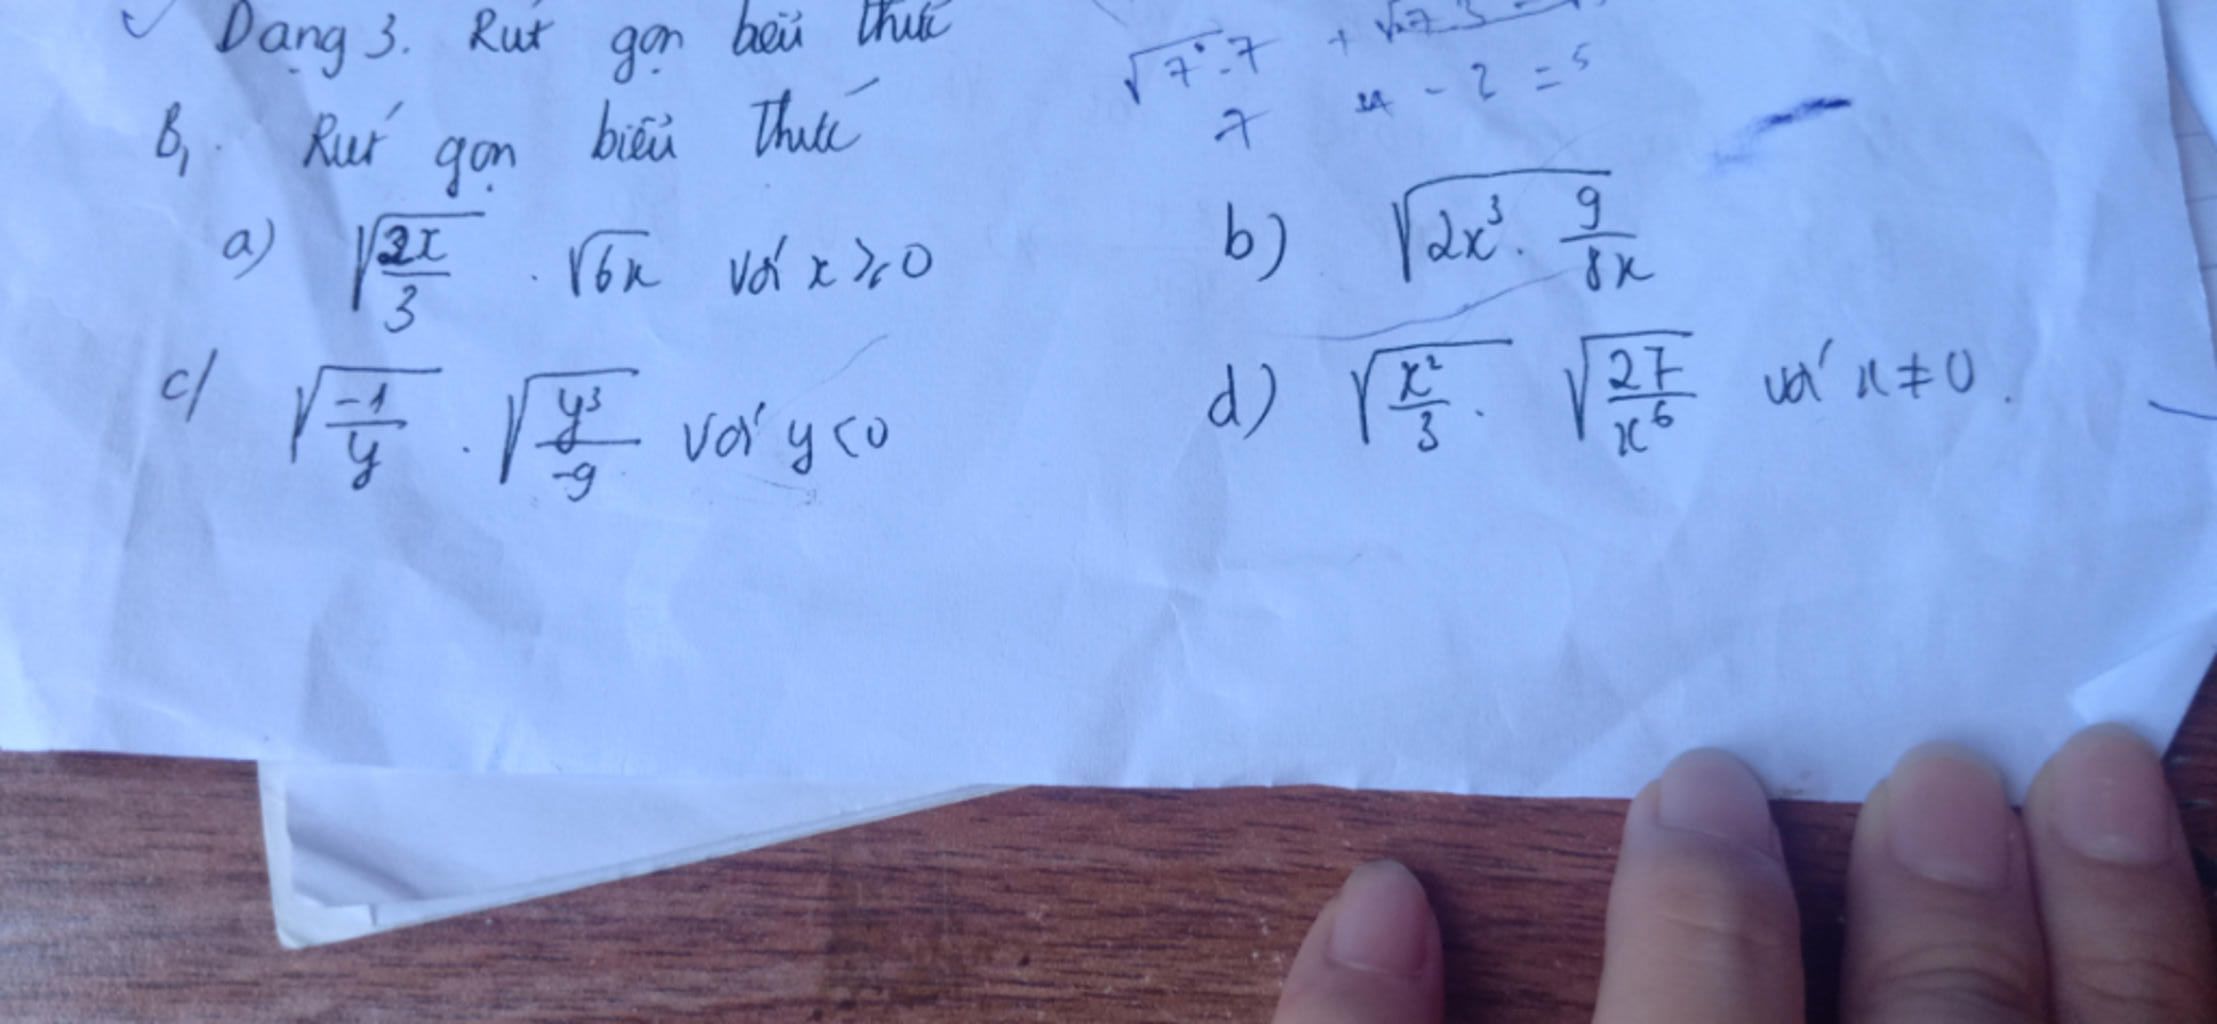 Dạng 3. Rút gọn biểu thức
√7².7 + √
7 - 2 = 5
B₁. Rút gọn biểu thức
a) √(2x/3) . √6x với x ≥ 0 b) √(2x³ . 9/8x)
c/ √(-1/y) . √(y³/-9) với y < 0 d) √(x²/3) . √(27/x⁶) với x ≠ 0.